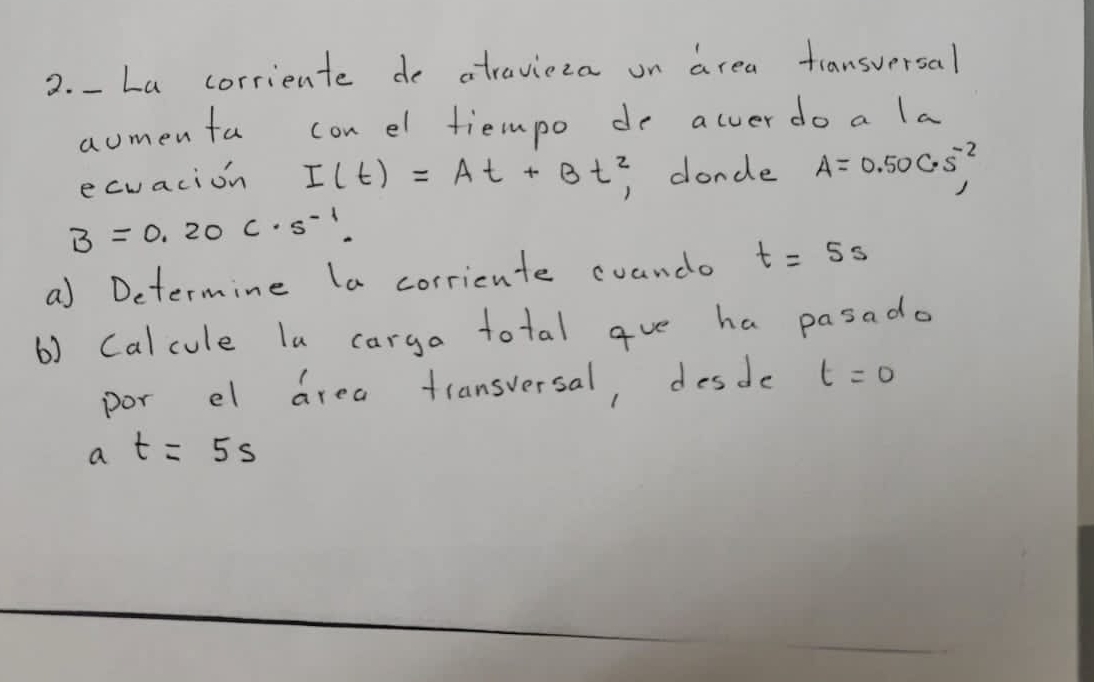 2.- La corriente de atravieza un área transversal
aumenta con el tiempo de acuerdo a la
ecuación I(t) = At + Bt², donde A= 0.50 C·s⁻²,
B = 0.20 C·s⁻¹.
a) Determine la corriente cuando t = 5s
b) Calcule la carga total que ha pasado
por el área transversal, desde t = 0
a t = 5s